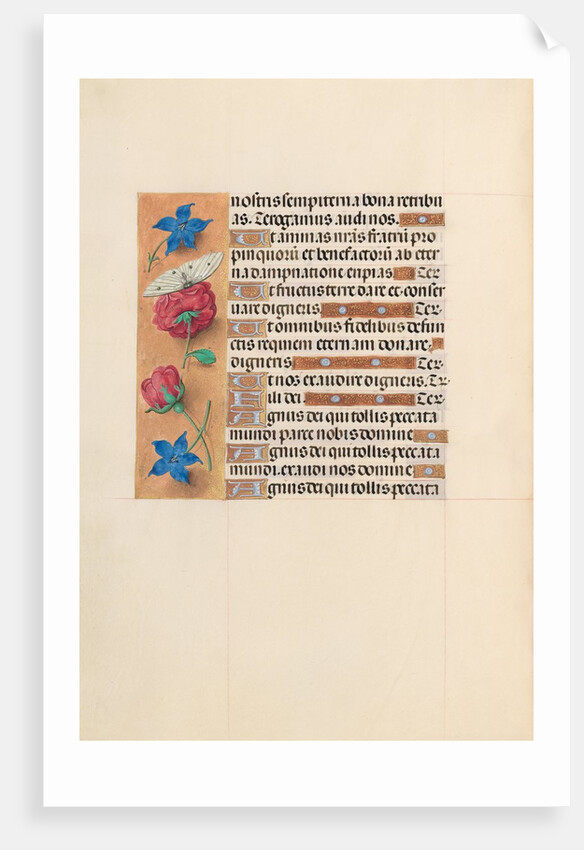 nostris sempiterna bona retribu
as. Te rogamus audi nos.
Et animas nr̄as fratrū pro
pinquorū et benefactorū ab eter
na dampnatione eripias Te r
Et fructus terre dare et conser
uare digneris Te r
Et omnibus fidelibus defun
ctis requiem eternam donare
digneris Te r
Et nos exaudire digneris. Te r
Fili dei. Te r
Agnus dei qui tollis peccata
mundi parce nobis domine
Agnus dei qui tollis peccata
mundi. exaudi nos domine
Agnus dei qui tollis peccata